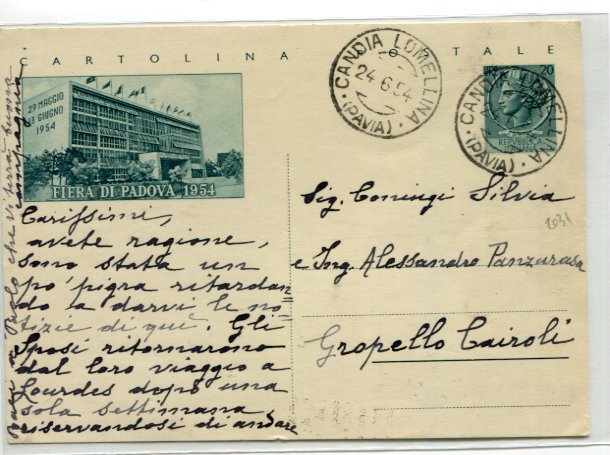 CARTOLINA POSTALE
29 MAGGIO
13 GIUGNO
1954
FIERA DI PADOVA 1954
CANDIA LOMELLINA
24.6.54
(PAVIA)
20
CANDIA LOMELLINA
(PAVIA)
Sig. Comingi Silvia
2031
e Ing. Alessandro Panzarasa
Gropello Cairoli
Carissimi,
avete ragione,
sono stata un
po' pigra ritardan=
do a darvi le no=
tizie di qui. Gli
Sposi ritornarono
dal loro viaggio a
Lourdes dopo una
sola settimana
riservandosi di andare
Paolo che vi terrà buona
compagnia